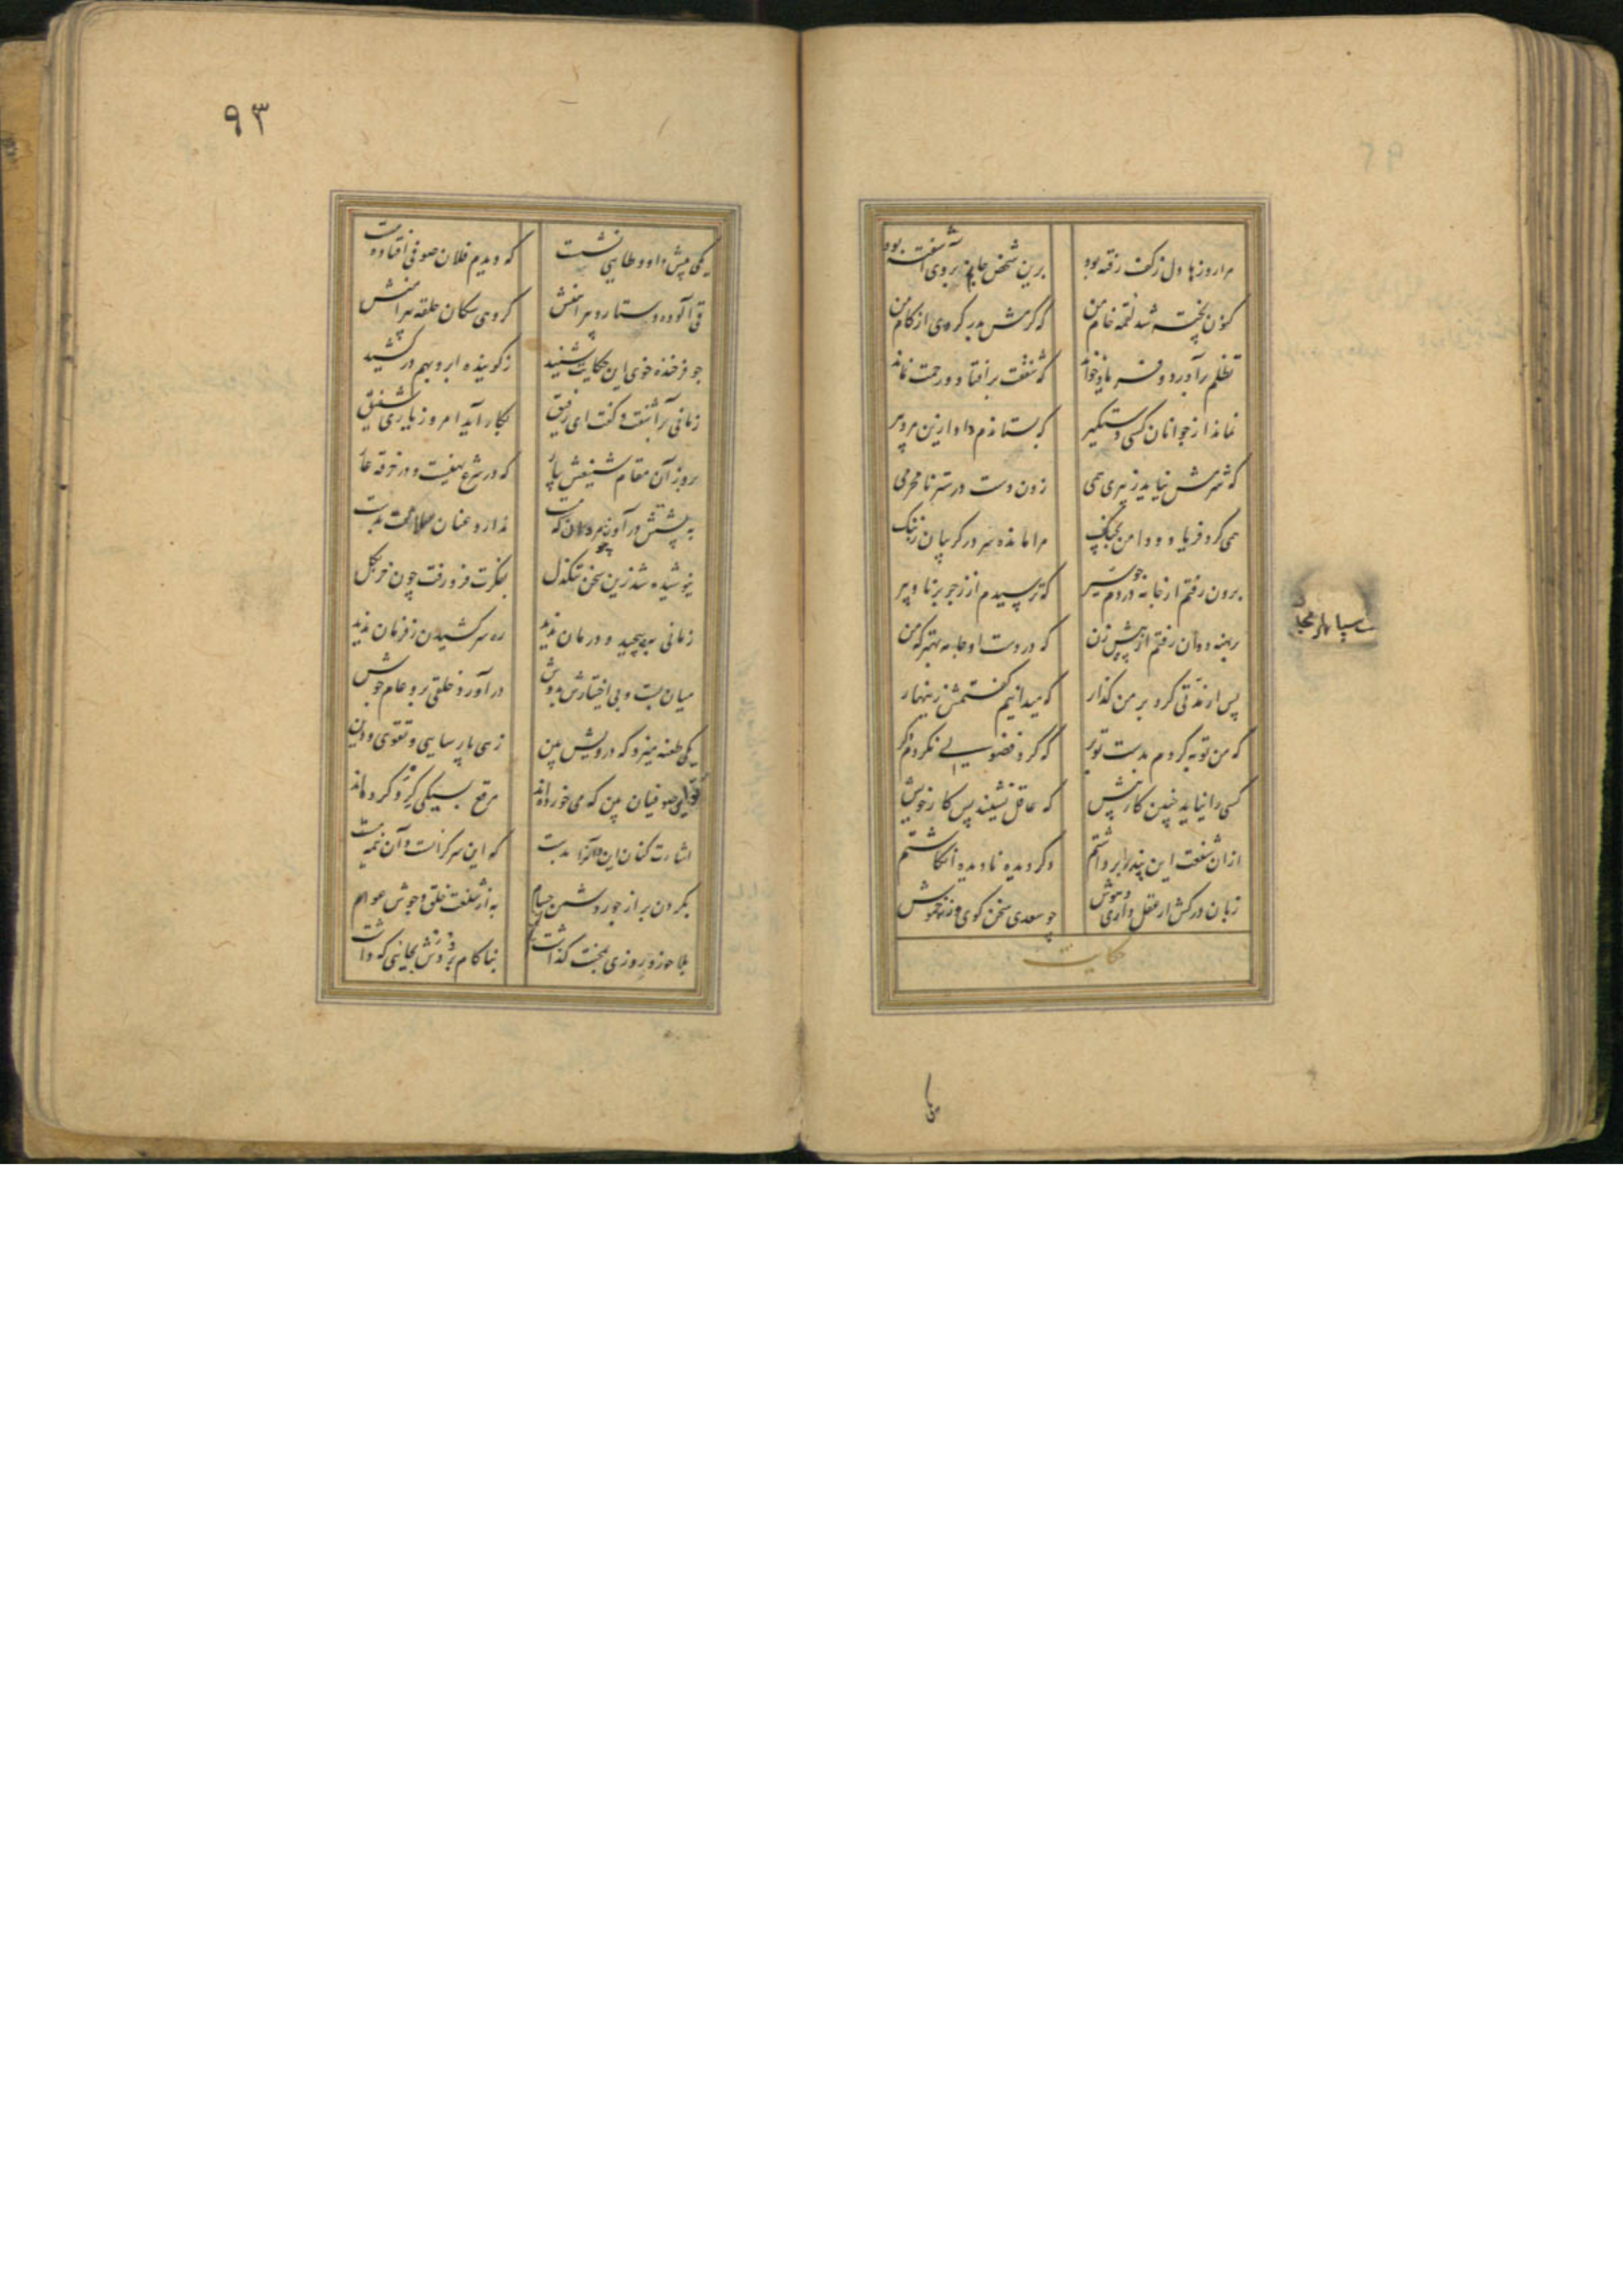 مرا روزها دل ز کف رفته بود برین شخص جان بروی آشفته بود
کنون پخته شد لقمه خام من که گرمش بدر کردی از کام من
تظلم برآورد و فریاد خواند که شفقت برافتاد و رحمت نماند
نماند از جوانان کسی دستگیر که بستاندم داد ازین مرد پیر
که شرمش نیاید ز پیری همی زدن دست در ستر نامحرمی
همی کرد فریاد و دامن بچنگ مرا مانده سر در گریبان ز ننگ
برون رفتم از خانه در دم چو سیر که ترسیدم از زجر برنا و پیر
برهنه دوان رفتم از پیش زن که در دست او جامه بهتر که من
پس از مدتی کرد بر من گذار که میدانیم گفتمش زینهار
که من توبه کردم بدست تو بر که گرد فضولی نگردم دگر
کسی را نیاید چنین کار پیش که عاقل نشیند پس کار خویش
ازان شنعت این پند برداشتم دگر دیده نادیده انگاشتم
زبان درکش ار عقل داری و هوش چو سعدی سخن گوی ورنه خموش
حکایت
۹۳
یکی پیش داود طایی نشست که دیدم فلان صوفی افتاده مست
قی آلوده دستار و پیراهنش گروهی سگان حلقه پیرامنش
چو فرخنده خوی این حکایت شنید ز گوینده ابرو بهم در کشید
زمانی برآشفت و گفت ای رفیق بکار آید امروز یاری شفیق
برو زان مقام شنیعش بیار که در شرع نهیست و در خرقه عار
به پشتش درآور چو مردان که مست ندارد عنان سلامت بدست
نیوشیده شد زین سخن تنگدل بفکرت فرو رفت چون خر بگل
زمانی بپیچید و درمان ندید ره سر کشیدن ز فرمان ندید
میان بست و بی اختیارش بدوش درآورد و خلقی برو عام جوش
یکی طعنه میزد که درویش بین زهی پارسایی و تقوی و دین
یکی صوفیان بین که می خورده اند مرقع بسیکی گرو کرده اند
اشارت کنان این و آنرا بدست که این سرگرانست و آن نیم مست
بگردن بر از جور دشمن حسام به از شنعت خلق و جوش عوام
بلا خورد و روزی بمحنت گذاشت بناکام بردش بجایی که داشت